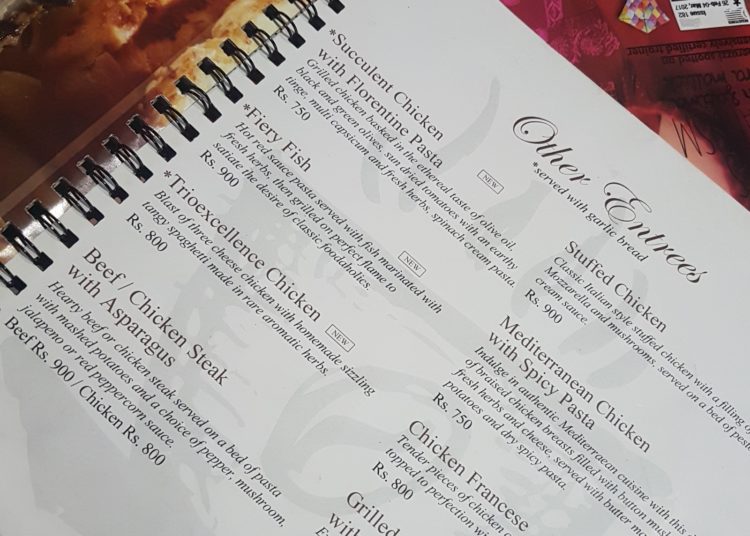 Other Entrees
*served with garlic bread
*Succulent Chicken
with Florentine Pasta
Grilled chicken basked in the ethereal taste of olive oil,
black and green olives, sun dried tomatoes with an earthy
tinge, multi capsicum and fresh herbs, spinach cream pasta.
Rs. 750
NEW
*Fiery Fish
Hot red sauce pasta served with fish marinated with
fresh herbs, then grilled on perfect flame to
satiate the desire of classic foodaholics.
Rs. 900
NEW
*Trioexcellence Chicken
Blast of three cheese chicken with homemade sizzling
tangy spaghetti made in rare aromatic herbs.
Rs. 800
NEW
Beef / Chicken Steak
with Asparagus
Hearty beef or chicken steak served on a bed of pasta
with mashed potatoes and a choice of pepper, mushroom,
jalapeno or red peppercorn sauce.
Beef Rs. 900 / Chicken Rs. 800
Stuffed Chicken
Classic Italian style stuffed chicken with a filling of
Mozzarella and mushrooms, served on a bed of pesto
cream sauce.
Rs. 900
Mediterranean Chicken
with Spicy Pasta
Indulge in authentic Mediterranean cuisine with this
of braised chicken breasts filled with button
fresh herbs and cheese, served with butter
potatoes and dry spicy pasta.
Rs. 750
Chicken Francese
Tender pieces of chicken
topped to perfection
Rs. 800
Grilled
Issue 182
26 Feb-04 Mar, 2017
certified trainer